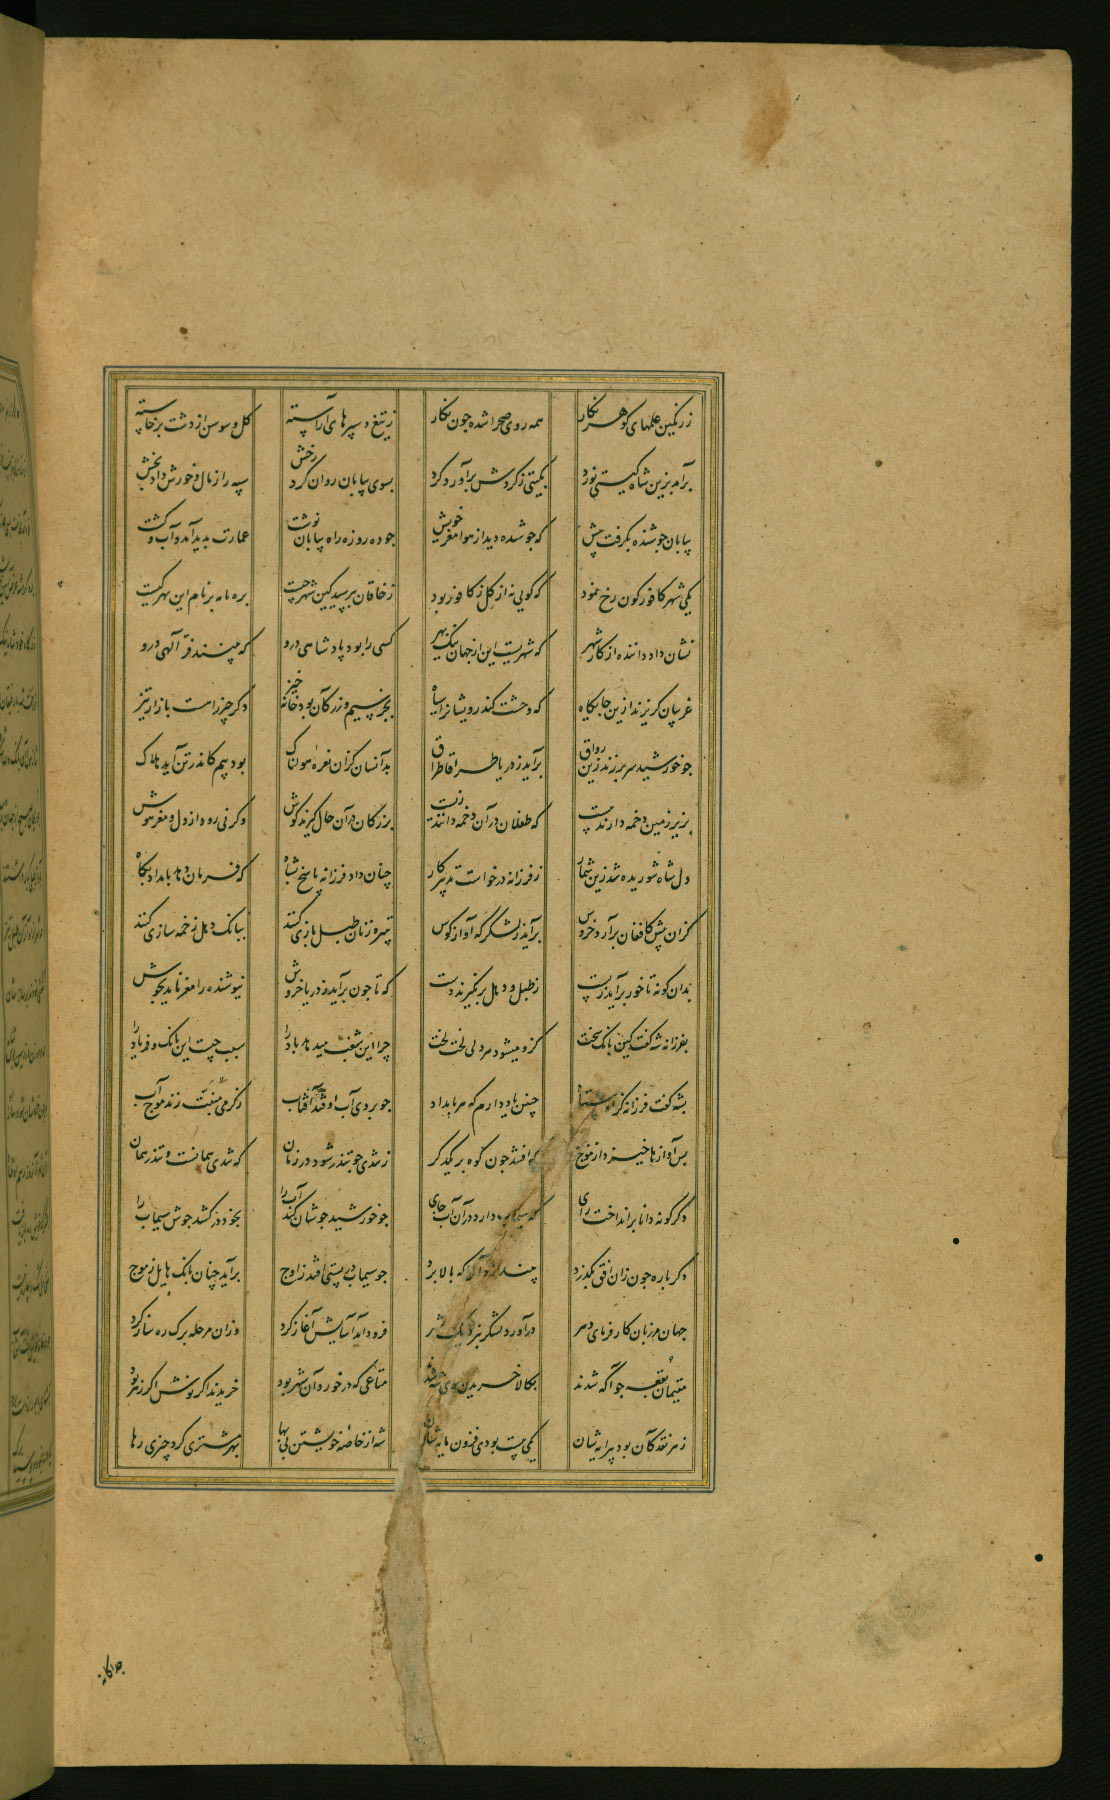 ز رنگین علمهای گوهر نگار همه روی صحرا شده چون نگار ز تیغ و سپرهای آراسته گل و سوسن از دشت برخاسته
برآمد بزین شاه گیتی نورد ز گیتی ز گردش برآورد گرد بسوی بیابان روان کرد رخش سپه را ز مال و خورش داد بخش
بیابان جوشنده بگرفت پیش که جوشیده دید از هوا مغز خویش چو ده روزه راه بیابان نوشت عمارت پدید آمد و آب و کشت
یکی شهر کافور گون رخ نمود که گویی نه از گل ز کافور بود ز خاقان بپرسید کین شهر چیست بره نامه بر نام این شهر کیست
نشان داد داننده از کار شهر که شهریست این از جهان تنگ بهر کسی را بود پادشاهی درو که بپسندد فر الهی درو
غریبان گریزند ازین جایگاه که وحشت کند رویشانرا سیاه بجز سیم و زر کان بود خانه خیز دگر چیزراست بازار تیز
چو خورشید سر برزند زین رواق برآید ز دریا طراقا طراق بدآنسان کزان نعره هولناک بود بیم کاندر تن آید هلاک
بزیر زمین دخمه دارند بیست که طفلان درآن دخمه دانند زیست بزرگان درآن حال گیرند گوش وگرنی رود از دل و مغز هوش
دل شاه شوریده شد زین شمار ز فرزانه درخواست تدبیر کار چنان داد فرزانه پاسخ بشاه که فرمان دهد بامداد پگاه
کزان پیش کافغان برآرد خروس برآید ز لشکرگه آواز کوس تبیره زنان طبل بازی کنند ببانگ دهل زخمه سازی کنند
بدان گونه تا خور برآید ز پست ز طبل و دهل برنگیرند دست که تا چون برآید ز دریا خروش نیوشنده را مغز ناید بجوش
بفرزانه شه گفت کین بانگ سخت کزو میشود مرد لی لخت لخت چرا این شغب میدهد باد را سبب چیست این بانگ و فریاد را
بشه گفت فرزانه کز اوستاد چنین یاد دارم که هر بامداد چو بر روی آب اوفتد آفتاب ز گرمی منبت زند موج آب
پس آوازها خیزد از موج که افتد چون کوه بر یکدگر ز تندی چو تندر شود در زمان که تندی همانست و تندر همان
دگرگونه دانا برانداخت رای که سیماب دارد در آن آب جای چو خورشید جوشان کند آب را بخود درکشد جوش سیماب را
دگر باره چون زان افق بگذرد بیندازد آنرا که بالا برد چو سیماب در پستی افتد ز اوج برآید چنان بانگ هایل ز موج
جهان مرزبان کارفرمای دهر درآورد لشکر بنزدیک شهر فرود آمد آسایش آغاز کرد وزان مرحله برگ ره ساز کرد
مقیمان بقعه چو آگه شدند بکالا خریدن سوی شه شدند متاعی که در خورد آن شهر بود خریدند اگر نوش اگر زهر بود
ز هر نقد کان بود پیرایه شان یکی بیست بودی فزون مایه شان شه از خاصه خویشتن بی بها بهر مشتری کرد چیزی رها
جداگانه